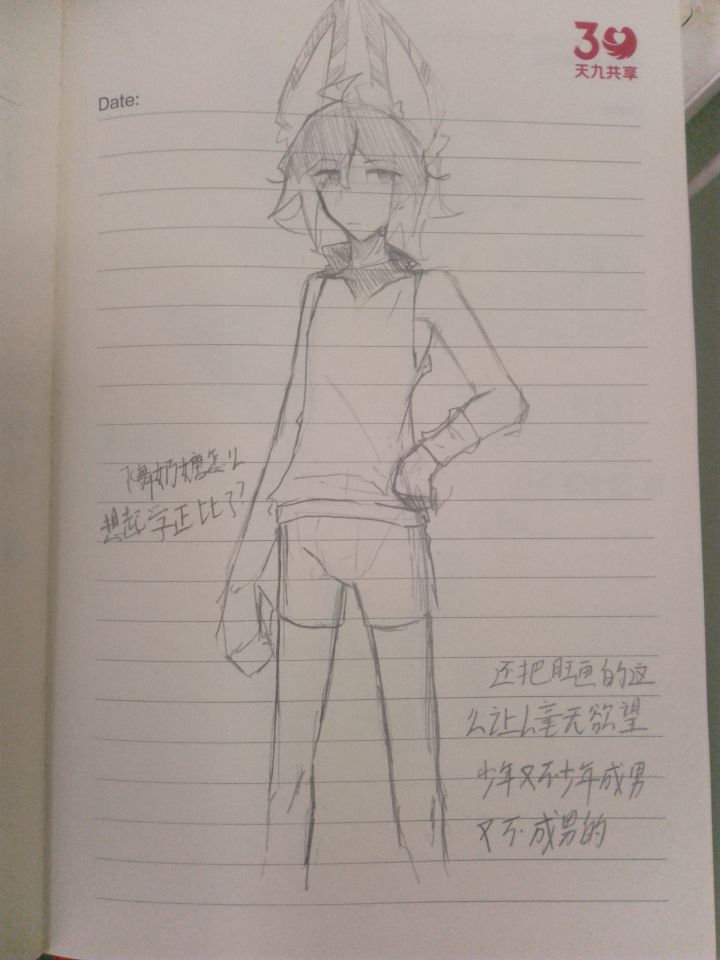 30
天九共享
Date:
舞奶糖怎么
想起学正比了?
还把旺画的这
么让人毫无欲望
少年又不少年成男
又不成男的